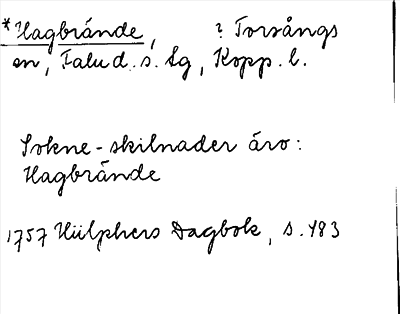 *Hagbrände, ? Torsångs
sn, Falu d. s. lg, Kopp. l.
Sokne-skilnader äro:
Hagbrände
1757 Hülphers Dagbok, s. 483